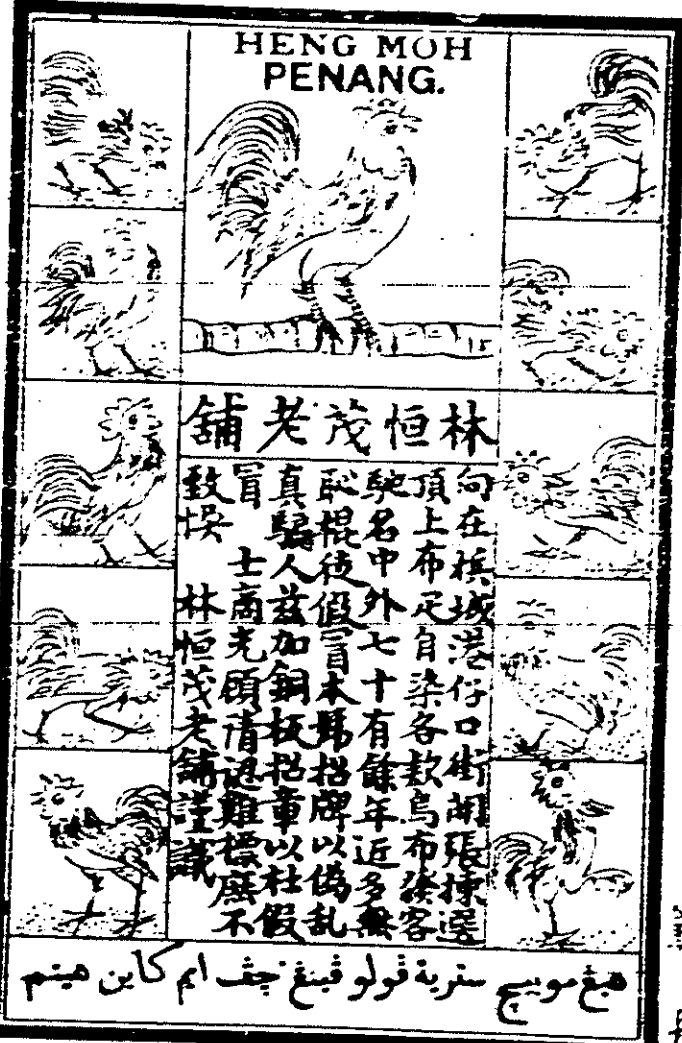 HENG MOH
PENANG.
林恒茂老舖
向在檳城港仔口街開張揀選
頂上布疋自染各款烏布發客
馳名中外七十有餘年近多無
恥棍徒假冒本號招牌以偽乱
真騙人茲加銅板招章以杜假
冒 士商光顧請認雞標庶不
致悞 林恒茂老舖謹議
هيڠ موبيچ سترية ڤولو ڤينڠ چڤ ايم كاين هيتم